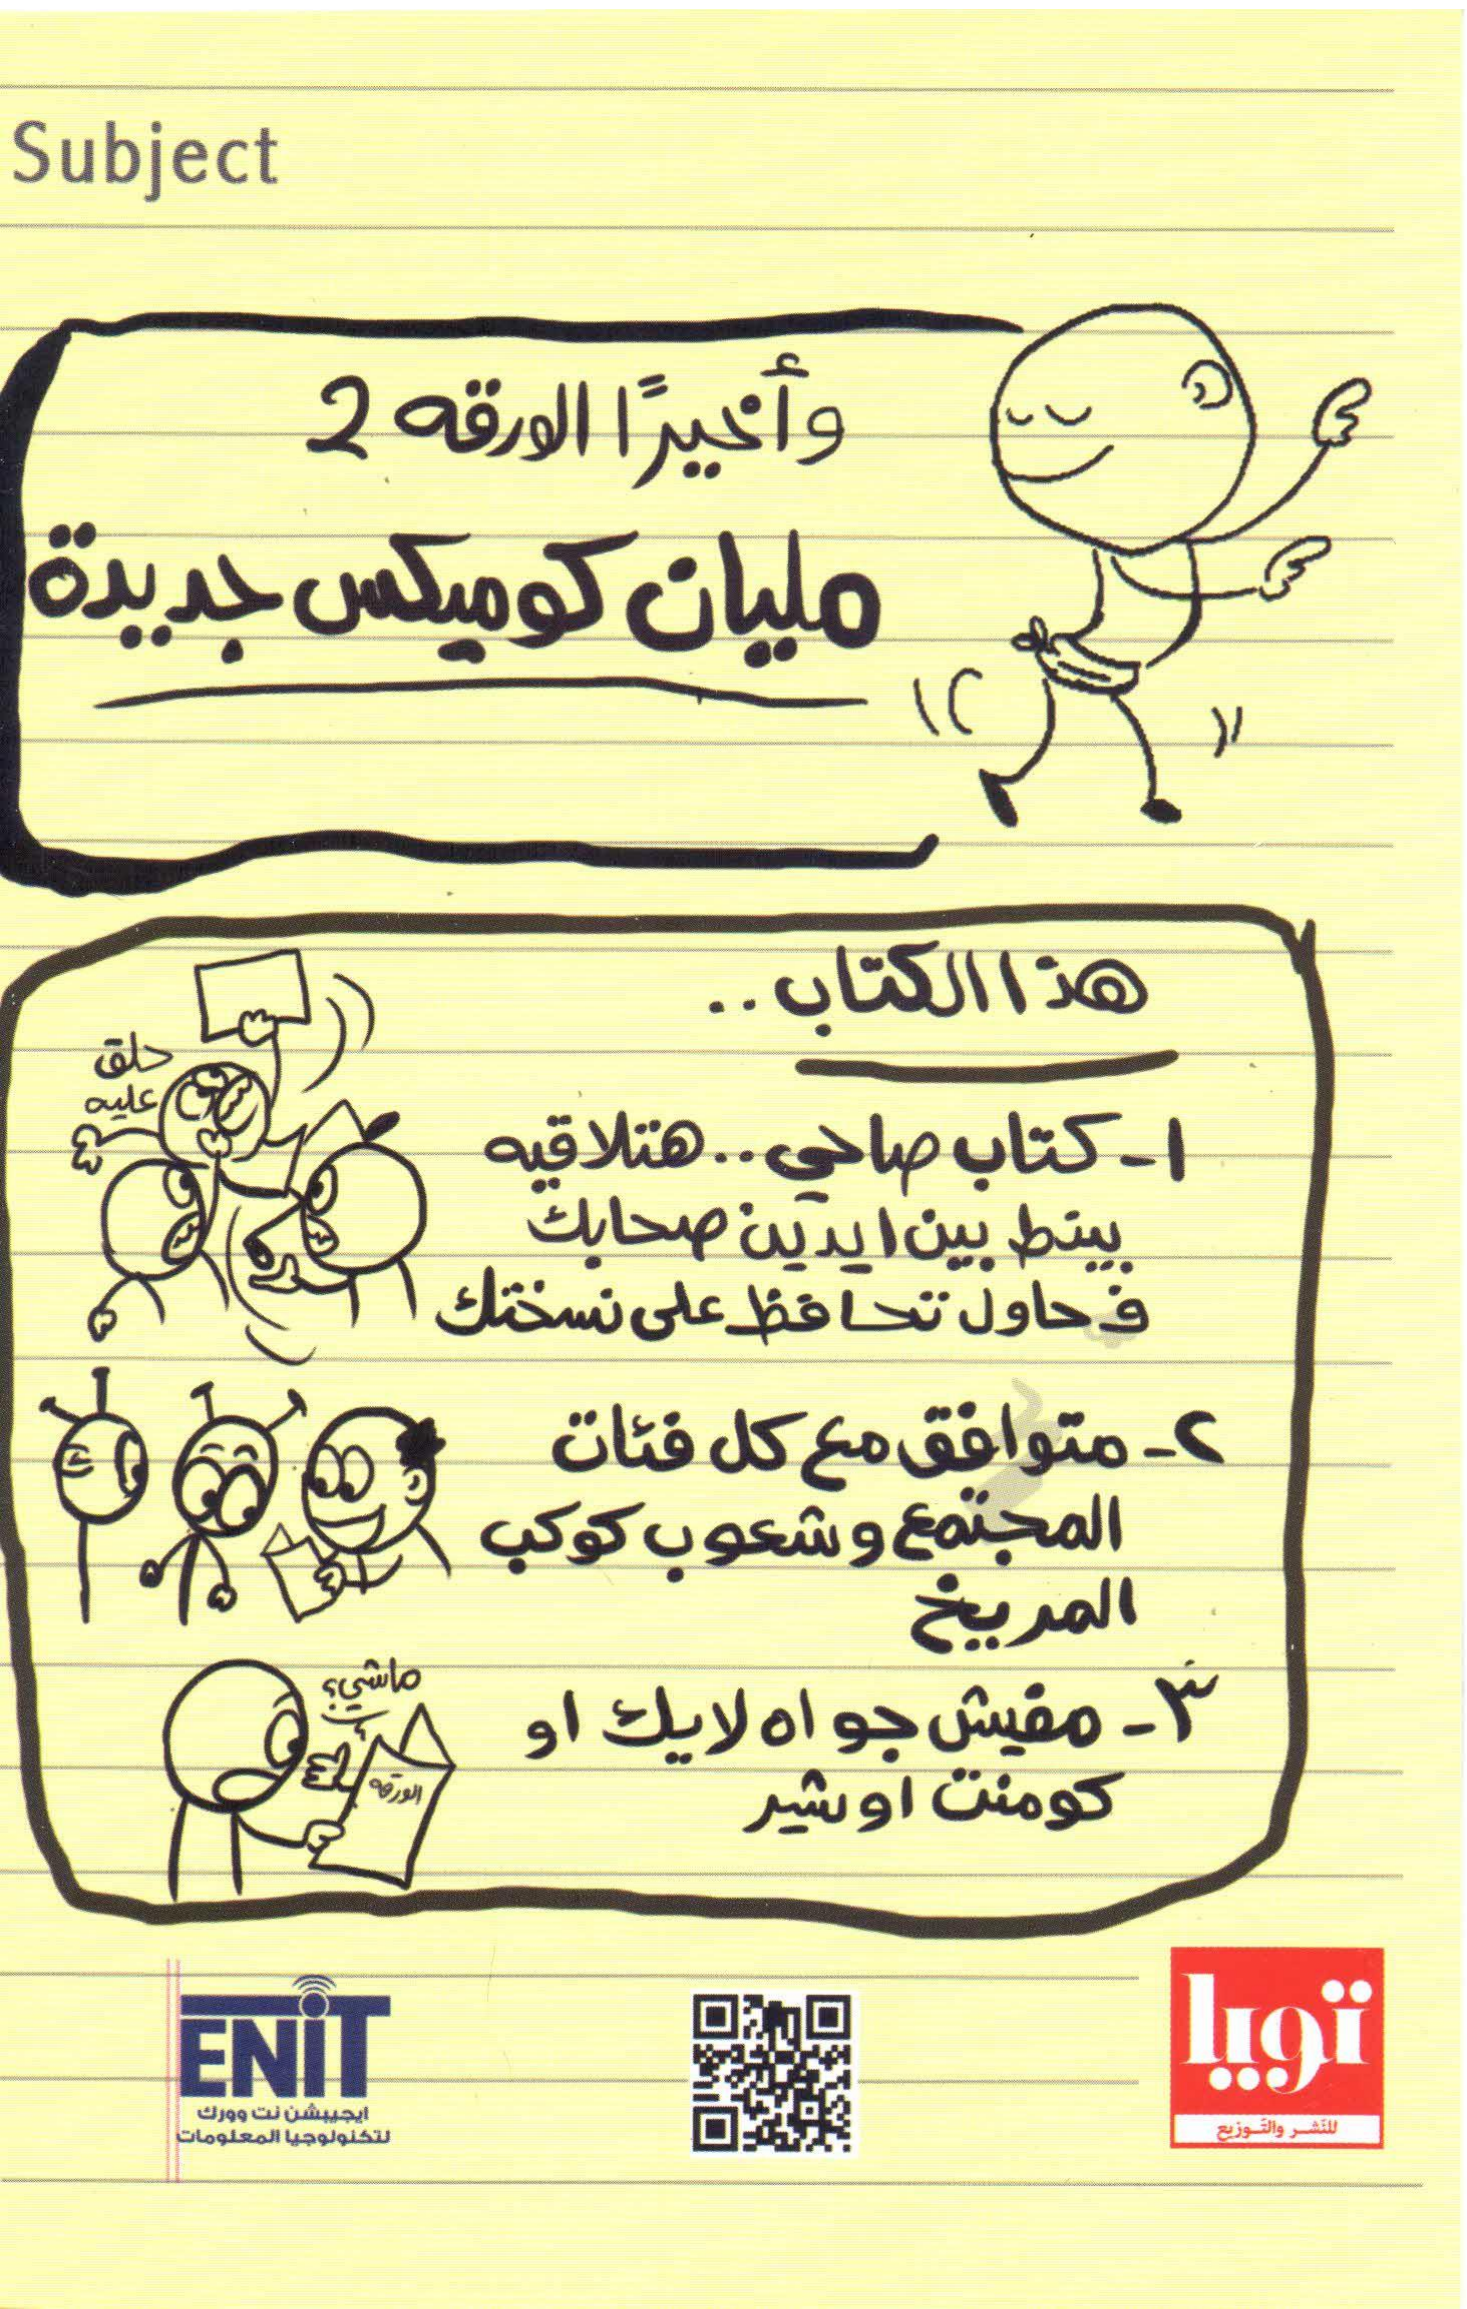 Subject
وأخيرًا الورقه 2
مليان كوميكس جديدة
هذا الكتاب..
١- كتاب صاحي.. هتلاقيه
بينط بين ايدين صحابك
فحاول تحافظ على نسختك
حلق
عليه
٢- متوافق مع كل فئات
المجتمع وشعوب كوكب
المريخ
٣- مفيش جواه لايك او
كومنت او شير
ماشي؟
الورقه
ENiT
ايجيبشن نت وورك
لتكنولوجيا المعلومات
تويا
للنَّشر والتَّوزيع